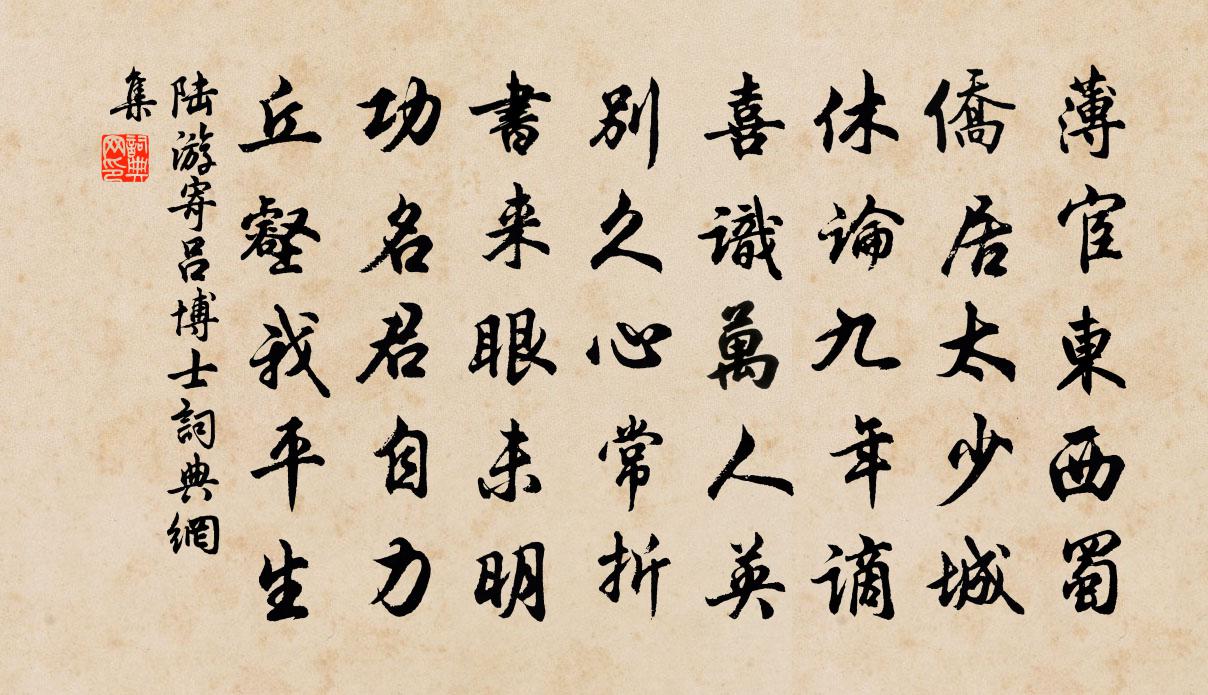 薄宦東西蜀
僑居太少城
休論九年謫
喜識萬人英
別久心常折
書来眼未明
功名君自力
丘壑我平生
陸游寄呂博士詞典網
集
詞典
网印